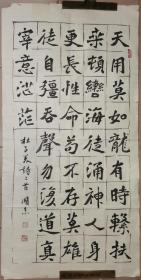 天用莫如龍有時繫扶
桒頓轡海徒涌神人身
更長性命苟不存英雄
徒自彊吞聲勿復道真
宰意茫茫
杜子美詩一首